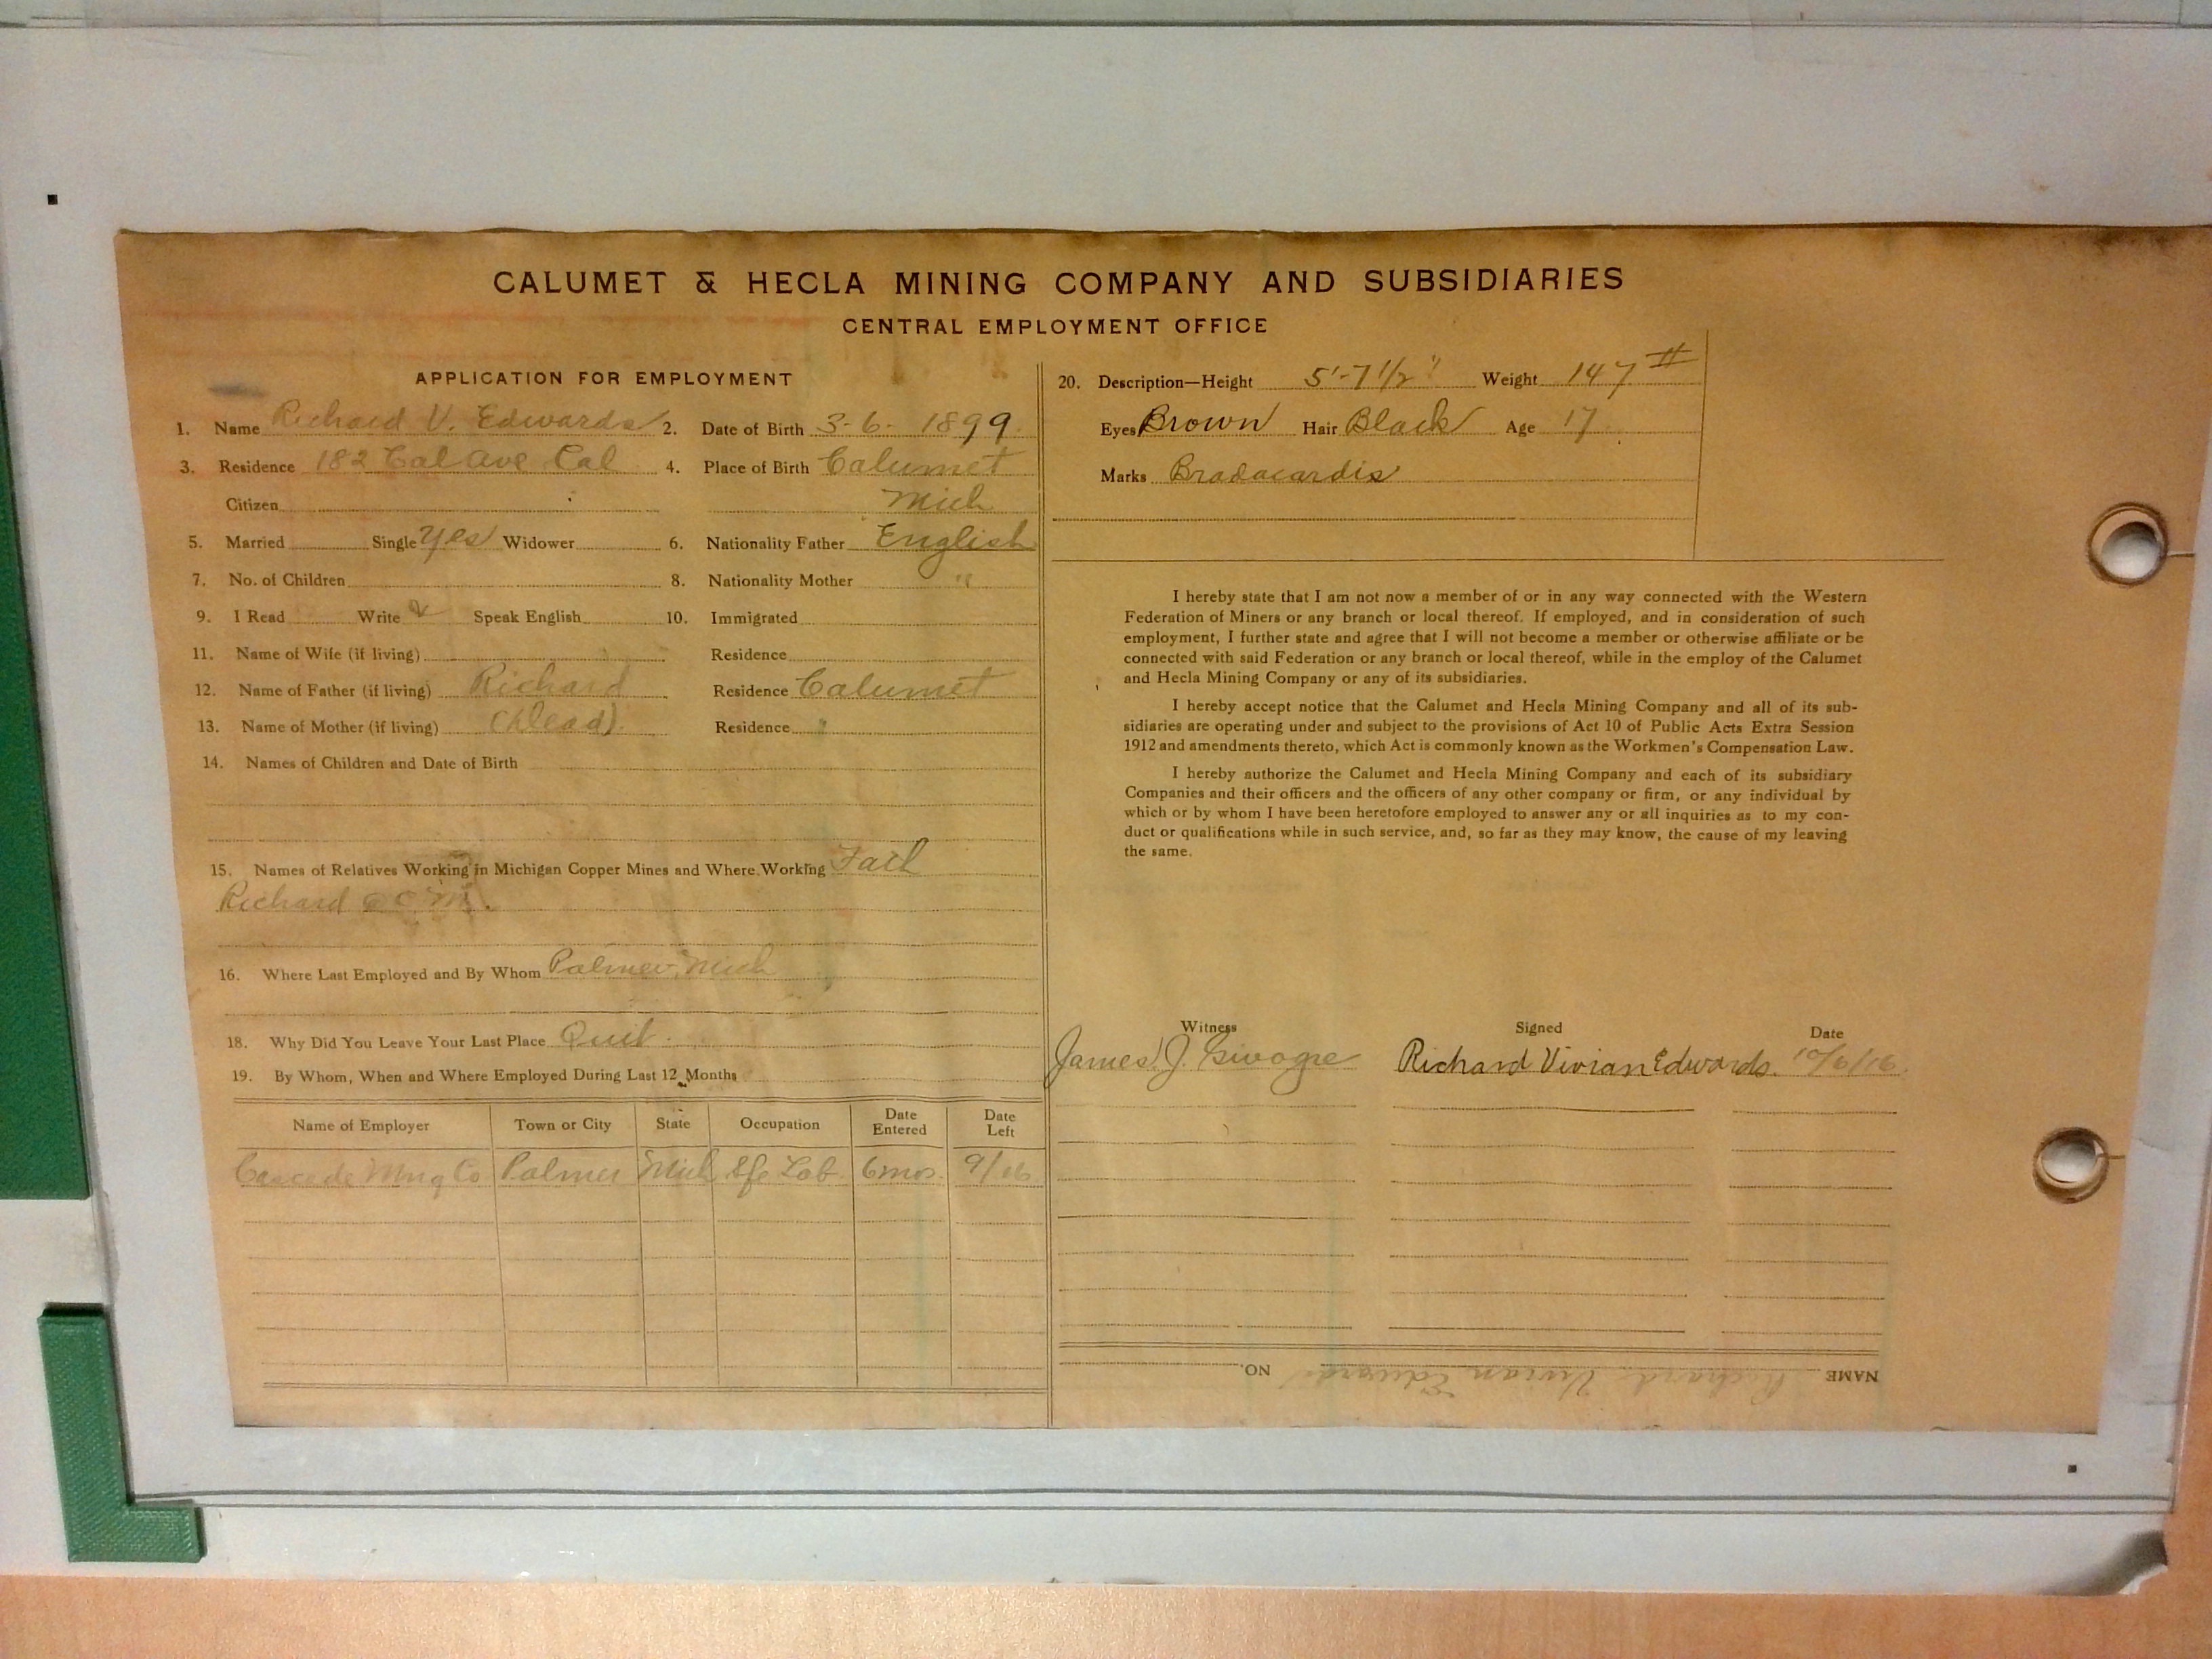 CALUMET & HECLA MINING COMPANY AND SUBSIDIARIES
CENTRAL EMPLOYMENT OFFICE
APPLICATION FOR EMPLOYMENT
1. Name Richard V. Edwards 2. Date of Birth 3-6-1899
3. Residence 182 Cal Ave Cal 4. Place of Birth Calumet
Citizen Mich
5. Married Single Yes Widower 6. Nationality Father English
7. No. of Children 8. Nationality Mother "
9. I Read Write Speak English 10. Immigrated
11. Name of Wife (if living) Residence
12. Name of Father (if living) Richard Residence Calumet
13. Name of Mother (if living) (Dead). Residence "
14. Names of Children and Date of Birth
15. Names of Relatives Working in Michigan Copper Mines and Where Working Fath
Richard
16. Where Last Employed and By Whom Palmer, Mich
18. Why Did You Leave Your Last Place Quit.
19. By Whom, When and Where Employed During Last 12 Months
Name of Employer Town or City State Occupation Date Entered Date Left
Cascade Mng Co Palmer Mich Sfe Lab. 6 mos. 9/16
20. Description—Height 5'-7 1/2" Weight 147 #
Eyes Brown Hair Black Age 17
Marks
I hereby state that I am not now a member of or in any way connected with the Western
Federation of Miners or any branch or local thereof. If employed, and in consideration of such
employment, I further state and agree that I will not become a member or otherwise affiliate or be
connected with said Federation or any branch or local thereof, while in the employ of the Calumet
and Hecla Mining Company or any of its subsidiaries.
I hereby accept notice that the Calumet and Hecla Mining Company and all of its sub-
sidiaries are operating under and subject to the provisions of Act 10 of Public Acts Extra Session
1912 and amendments thereto, which Act is commonly known as the Workmen's Compensation Law.
I hereby authorize the Calumet and Hecla Mining Company and each of its subsidiary
Companies and their officers and the officers of any other company or firm, or any individual by
which or by whom I have been heretofore employed to answer any or all inquiries as to my con-
duct or qualifications while in such service, and, so far as they may know, the cause of my leaving
the same.
Witness Signed Date
James J. Richard Vivian Edwards. 10/6/16.
NAME Richard Vivian Edwards NO.